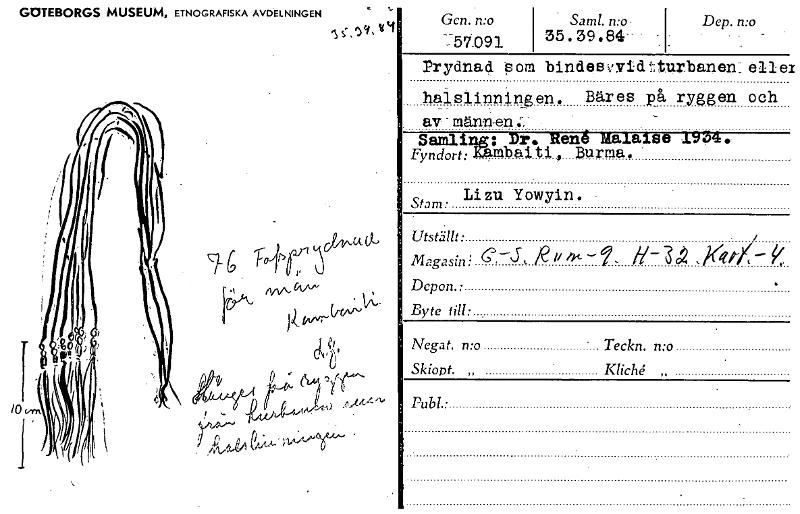 GÖTEBORGS MUSEUM, ETNOGRAFISKA AVDELNINGEN
35.39.84
10 cm
76 Tofsprydnad
för män
Kambaiti
d.f.
Hänges på ryggen
från turbanen eller
halslinningen.
Gen. n:o Saml. n:o Dep. n:o
57091 35.39.84
Prydnad som bindes vid turbanen eller
halslinningen. Bäres på ryggen och
av männen.
Samling: Dr. René Malaise 1934.
Fyndort: Kambaiti, Burma.
Stam: Lizu Yowyin.
Utställt:
Magasin: G-S. Rum-9. H-32 Kart.-4.
Depon.:
Byte till:
Negat. n:o Teckn. n:o
Skiopt. „ Kliché „
Publ.: